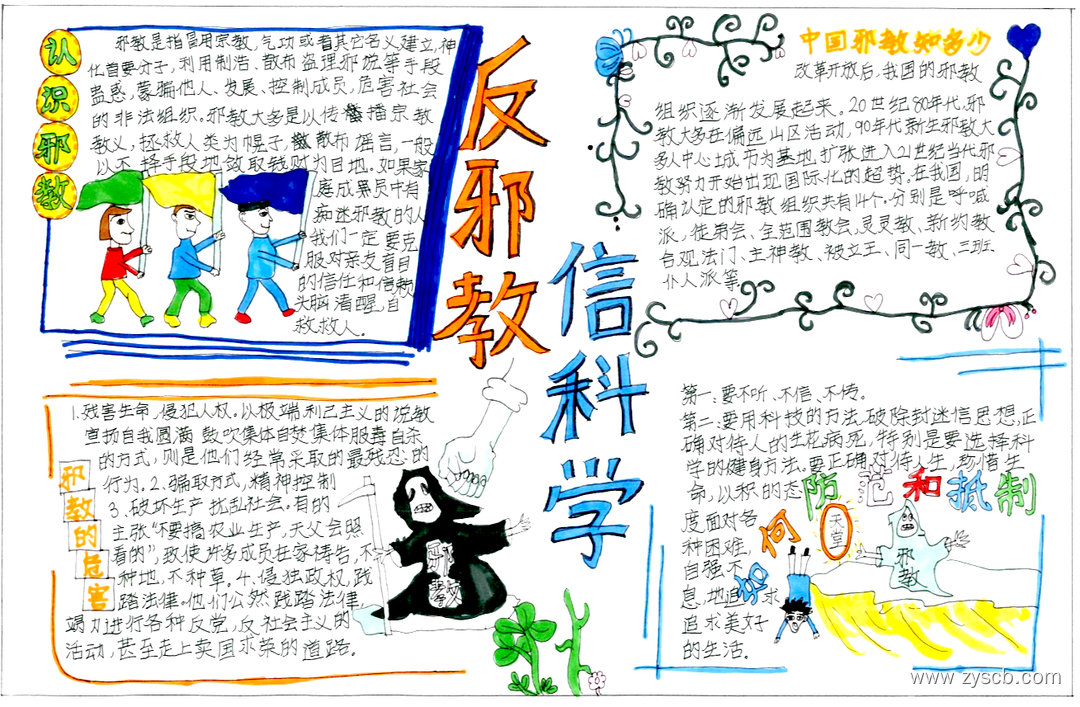 认识邪教
邪教是指冒用宗教，气功或者其它名义建立，神
化首要分子，利用制造、散布歪理邪说等手段
蛊惑，蒙骗他人、发展、控制成员，危害社会
的非法组织。邪教大多是以传播宗教
教义，拯救人类为幌子，散布谣言，一般
以不择手段地敛取钱财为目地。如果家
庭成景员中有
痴迷邪教的人
我们一定要克
服对亲友盲目
的信任和信赖
头脑清醒，自
救救人。
反邪教
信科学
中国邪教知多少
改革开放后，我国的邪教
组织逐渐发展起来。20世纪80年代，邪
教大多在偏远山区活动，90年代新生邪教大
多以中心城市为基地，扩张进入21世纪当代邪
教努力开始出现国际化的趋势。在我国，明
确认定的邪教组织共有14个。分别是呼喊
派，徒弟会、全范围教会，灵灵教、新约教
会观法门、主神教、被立王、同一教、三班
仆人派等
邪教的危害
1、残害生命，侵犯人权。以极端利己主义的说教
宣扬自我圆满 鼓吹集体自焚集体服毒自杀
的方式，则是他们经常采取的最残忍的
行为。2、骗取方式，精神控制
3、破坏生产 扰乱社会。有的
主张"不要搞农业生产，天父会照
看的"，致使许多成员在家祷告，不
种地，不种草。4、侵独政权，践
踏法律。他们公然践踏法律，
竭力进行各种反党，反社会主义的
活动，甚至走上卖国求荣的道路。
邪教
如何防范和抵制
第一：要不听、不信、不传。
第二：要用科技的方法，破除封迷信思想，正
确对待人的生老病死，特别是要选择科
学的健身方法。要正确对待人生，珍惜生
命，以积的态
度面对各
种困难，
自强不
息，地追求
追求美好
的生活。
天堂
邪教
www.zyscb.com